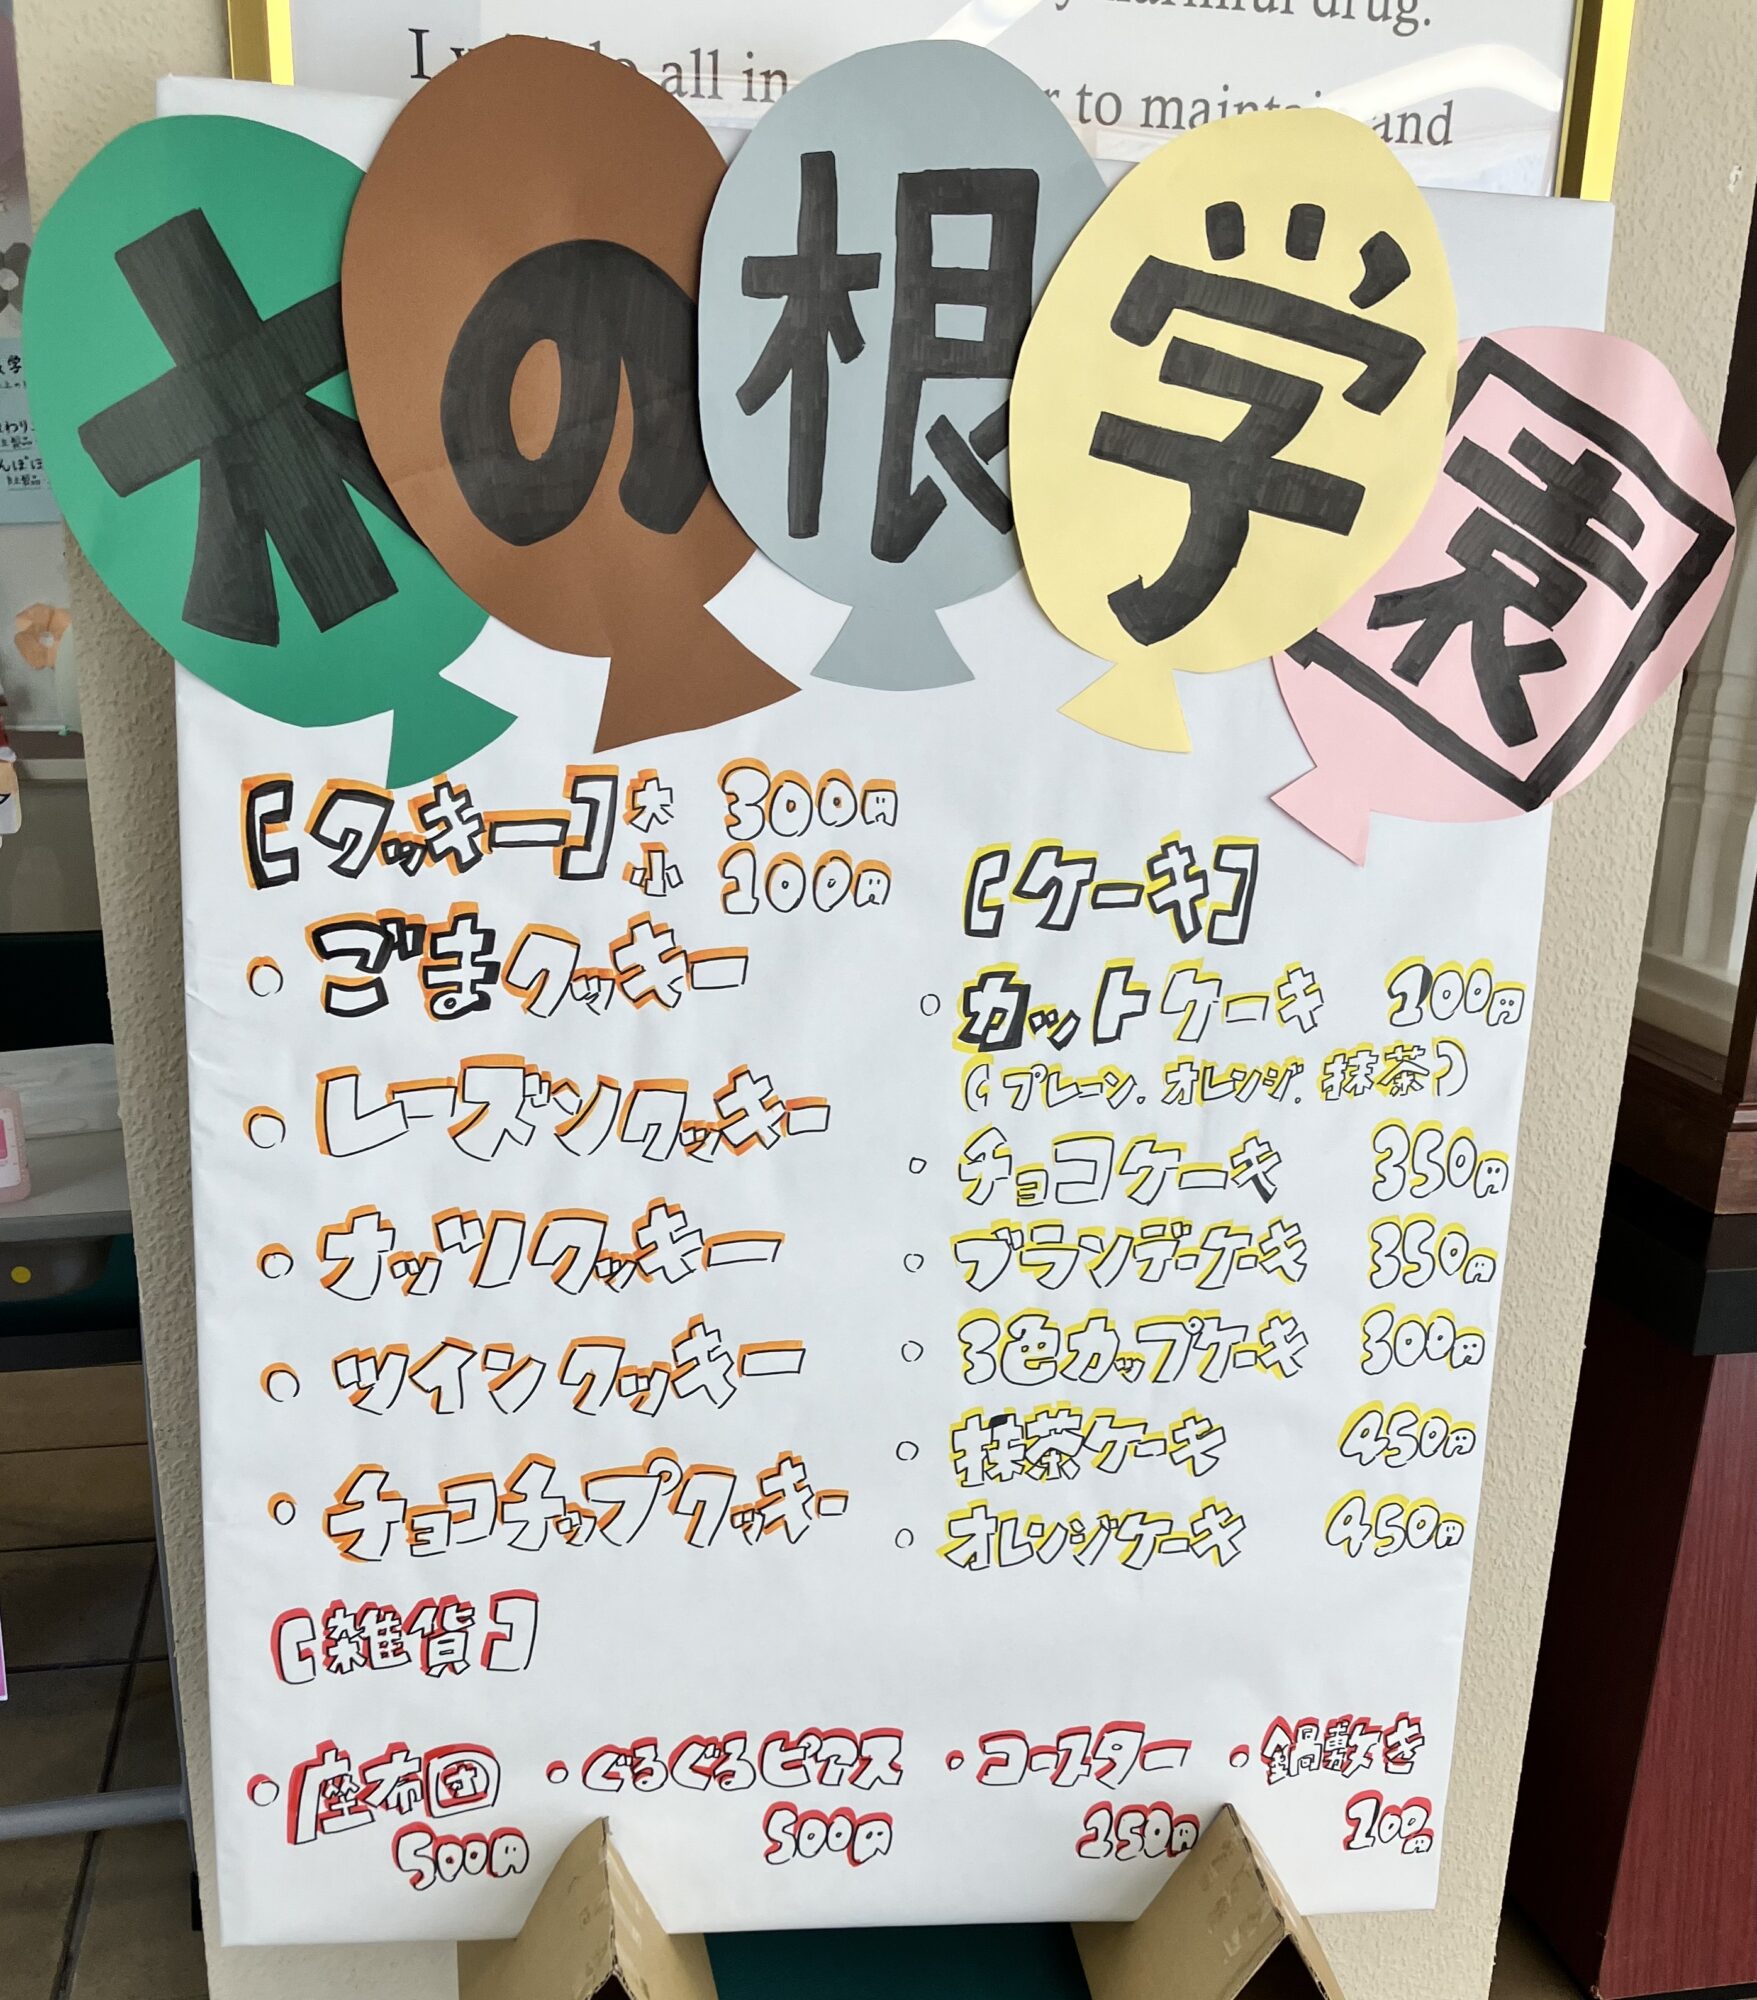 I all in to maintain and
harmful drug.
木の根学園
【クッキー】大 300円
小 100円
○ ごまクッキー
○ レーズンクッキー
○ ナッツクッキー
○ ツインクッキー
○ チョコチップクッキー
【ケーキ】
○ カットケーキ 100円
(プレーン.オレンジ.抹茶)
○ チョコケーキ 350円
○ ブランデーケーキ 350円
○ 3色カップケーキ 300円
○ 抹茶ケーキ 450円
○ オレンジケーキ 450円
【雑貨】
○ 座布団 500円
• ぐるぐるピアス 500円
• コースター 150円
○ 鍋敷き 100円